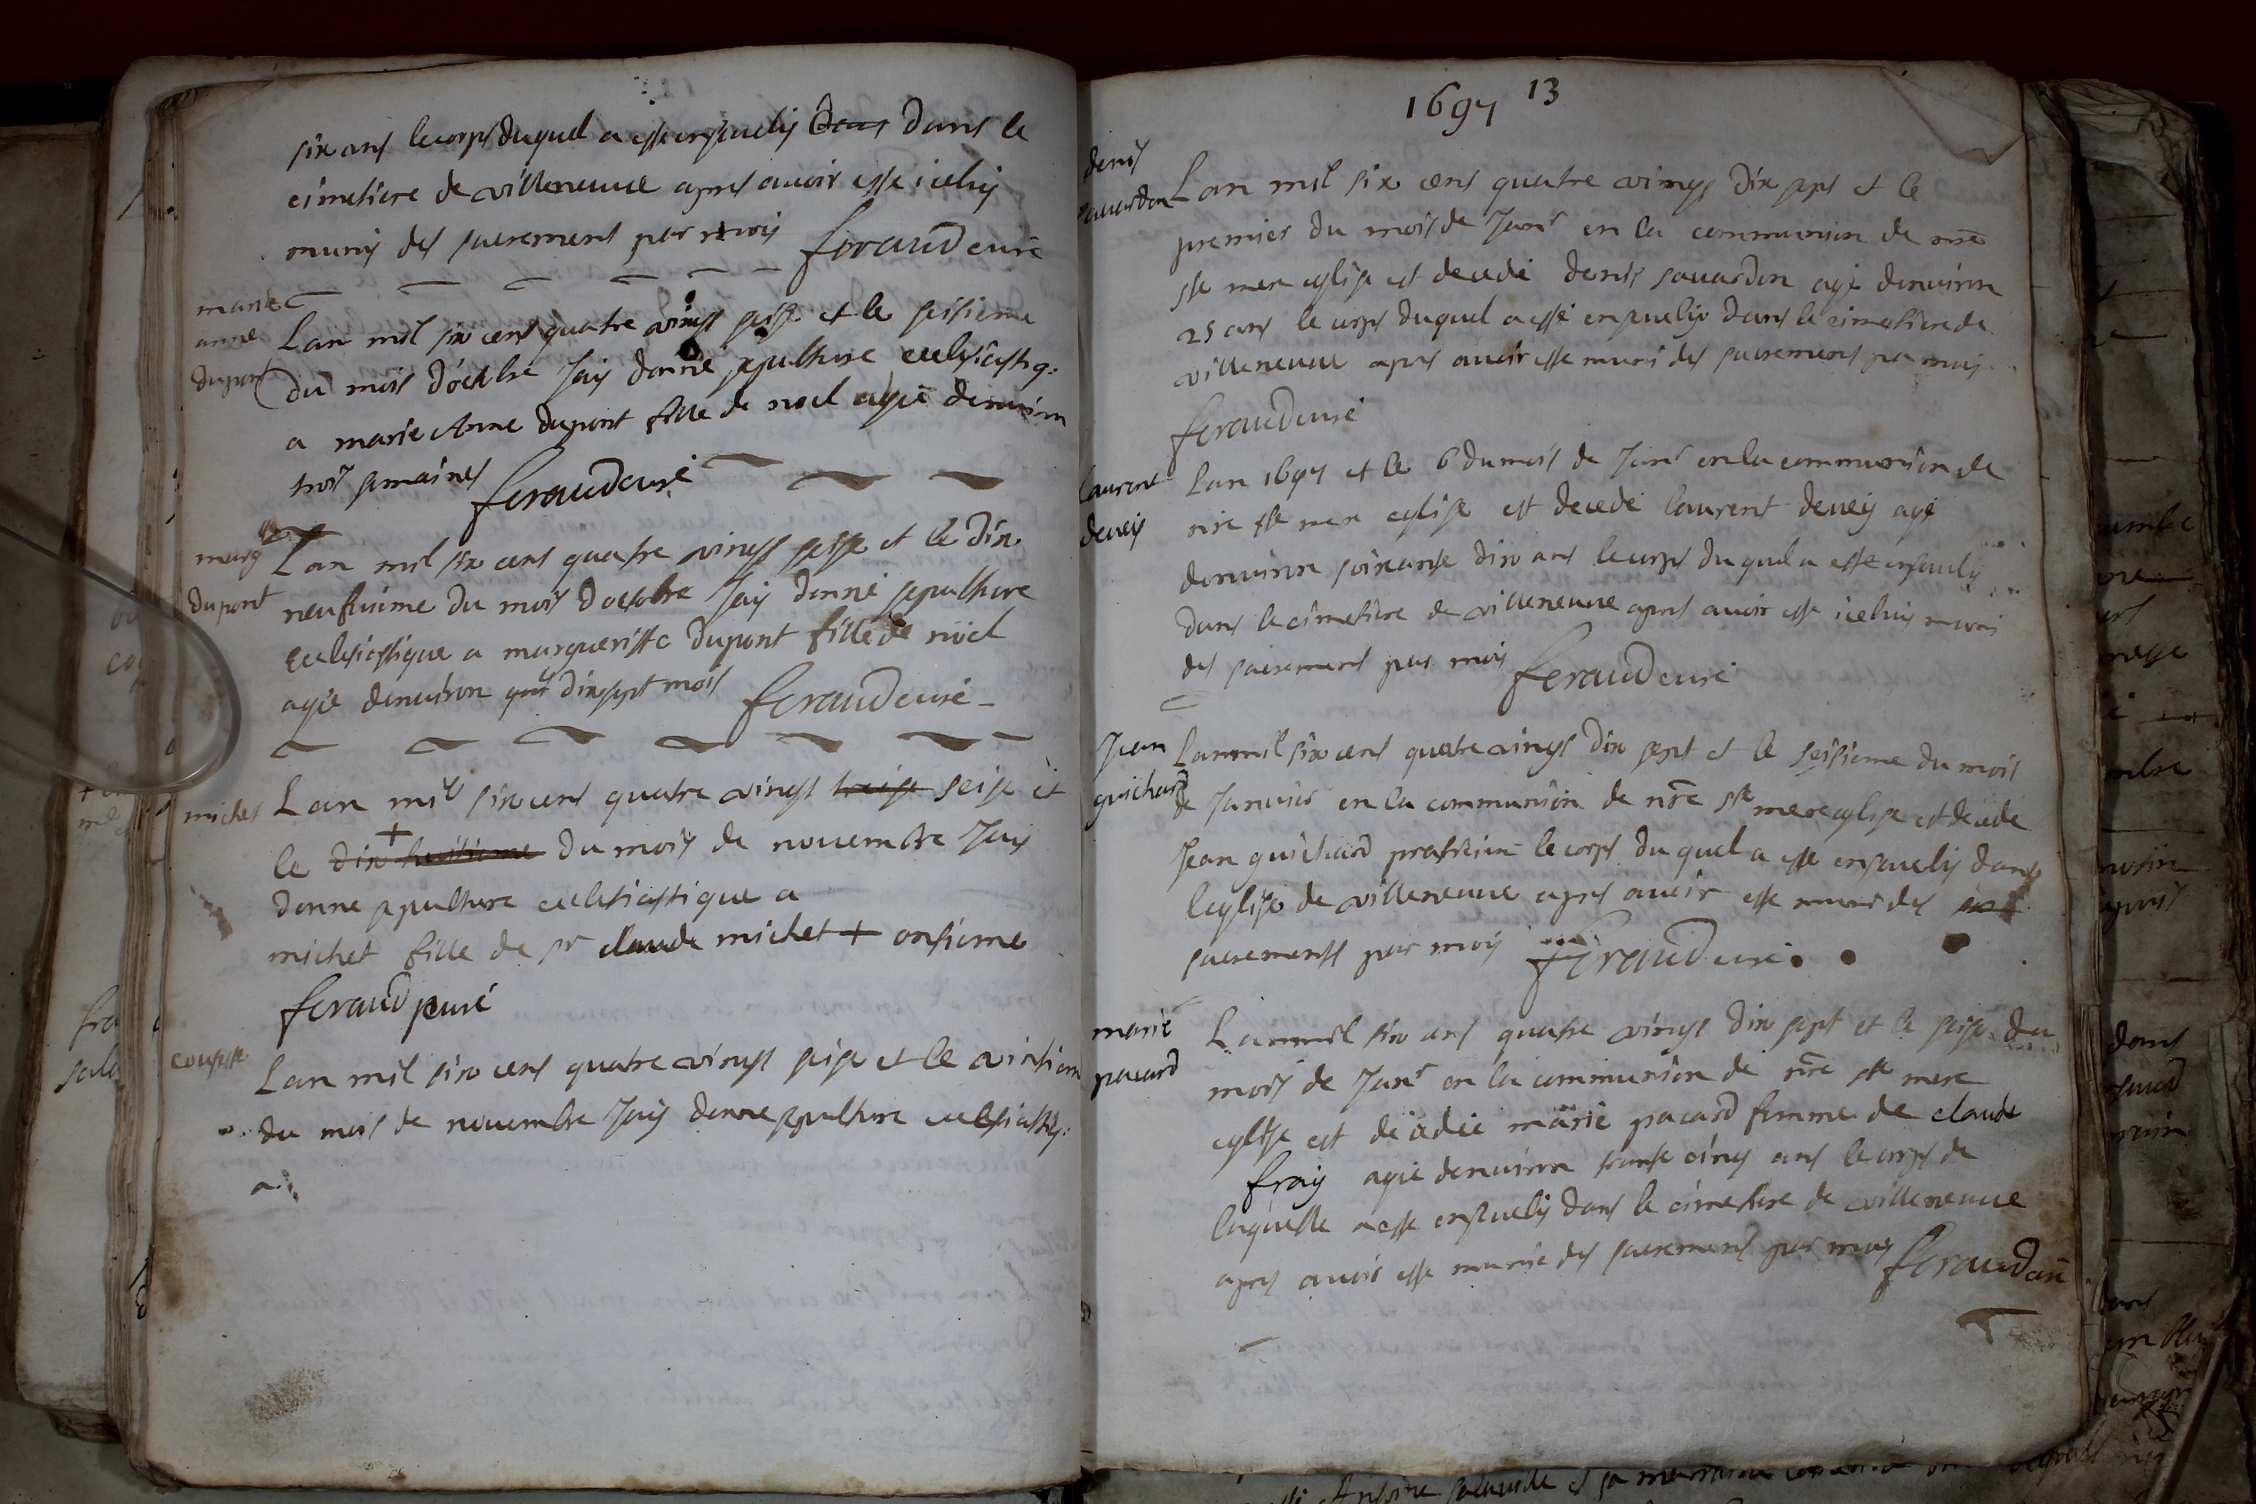 six ans le corps duquel a esse ensuely dans dans le
cimetiere de villeneuve apres avoir esse iceluy
muny des sacremens par moy feraud curé
marie
anne
dupont
Lan mil six cens quatre vings seise et le seisieme
du mois doctobre Jay donné sepulture eclesiastiq:
a marie Anne dupont fille de noel agée denviron
trois semaines feraud curé
marg
dupont
Lan mil six cens quatre vings seise et le dix
neufiesme du mois doctobre Jay donné sepulture
Eclesiastique a margueritte dupont fille de noel
agée denviron dix sept mois feraud curé
michet
Lan mil six cens quatre vings treise seise et
le dix huitieme + du mois de novembre Jay
donne sepulture eclesiastique a
michet fille de sr claude michet + onsieme
feraud curé
Lan mil six cens quatre vings seise et le vintiem
du mois de novembre Jay donne sepulture eclesiastiq:
a
1697 13
denis
savardon
Lan mil six cens quatre vings dix sept et le
premier du mois de Janr en la communion de nre
ste mere eglise est decedé denis savardon agé denviron
25 ans le corps duquel a esse ensuely dans le cimetiere de
villeneuve apres avoir esse muni des sacremens par moy
feraud curé
laurent
devey
Lan 1697 et le 6 du mois de Janr en la communion de
nre ste mere eglise est decedé laurent devey agé
denviron soixante dix ans le corps duquel a esse ensuely
dans le cimetiere de villeneuve apres avoir esse iceluy muni
des sacremens par moy feraud curé
Jean
guichard
Lan mil six cens quatre vings dix sept et le seisieme du mois
de Janvier en la communion de nre ste mere eglise est decede
Jean guichard le corps du quel a esse ensuely dans
leglise de villeneuve apres avoir esse muni des
sacremens par moy feraud curé
marie
pacard
Lan mil six cens quatre vings dix sept et le seise du
mois de Janr en la communion de nre ste mere
eglise est decedée marie pacard femme de claude
fray agée denviron trante cinq ans le corps de
laquelle a esse ensuely dans le cimetiere de villeneuve
apres avoir esse munie des sacremens par moy feraud curé